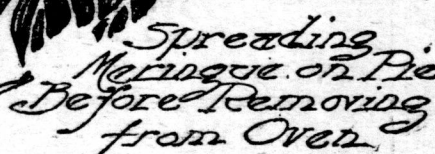 Spreading
Meringue on Pie
Before Removing
from Oven